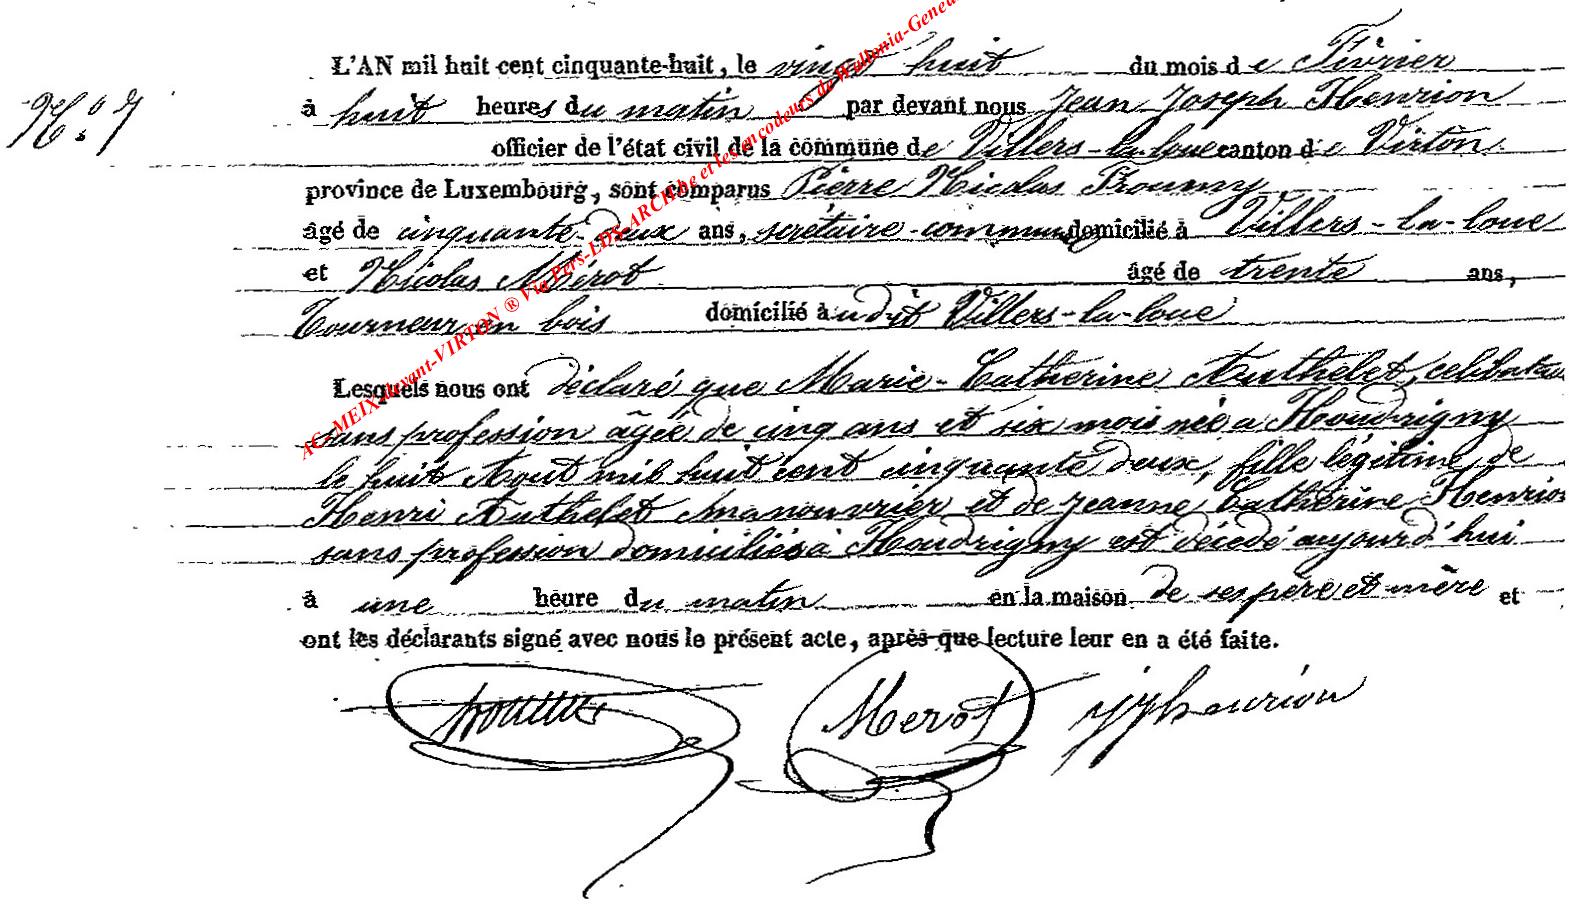 L'AN mil huit cent cinquante-huit, le vingt huit du mois de Février
N.º 7
à huit heures du matin par devant nous Jean Joseph Henrion
officier de l'état civil de la commune de Villers-la-loue canton de Virton
province de Luxembourg, sont comparus Pierre Nicolas Proumy
âgé de cinquante-deux ans, secrétaire-communal domicilié à Villers-la-loue
et Nicolas Mérot âgé de trente ans,
Tourneur en bois domicilié audit Villers-la-loue
Lesquels nous ont déclaré que Marie-Catherine Authelet, celibataire
sans profession agée de cinq ans et six mois née a Houdrigny
le huit Aout mil huit cent cinquante deux, fille légitime de
Henri Authelet manouvrier et de Jeanne Catherine Henrion
sans profession domiciliés à Houdrigny est décédé aujourd'hui
à une heure du matin en la maison de ses père et mère et
ont les déclarants signé avec nous le présent acte, après que lecture leur en a été faite.
Merot JJhenrion
AC-MEIX-devant-VIRTON ® Via Pers-LDS-ARCH.be et les encodeurs de Wallonia-Genea